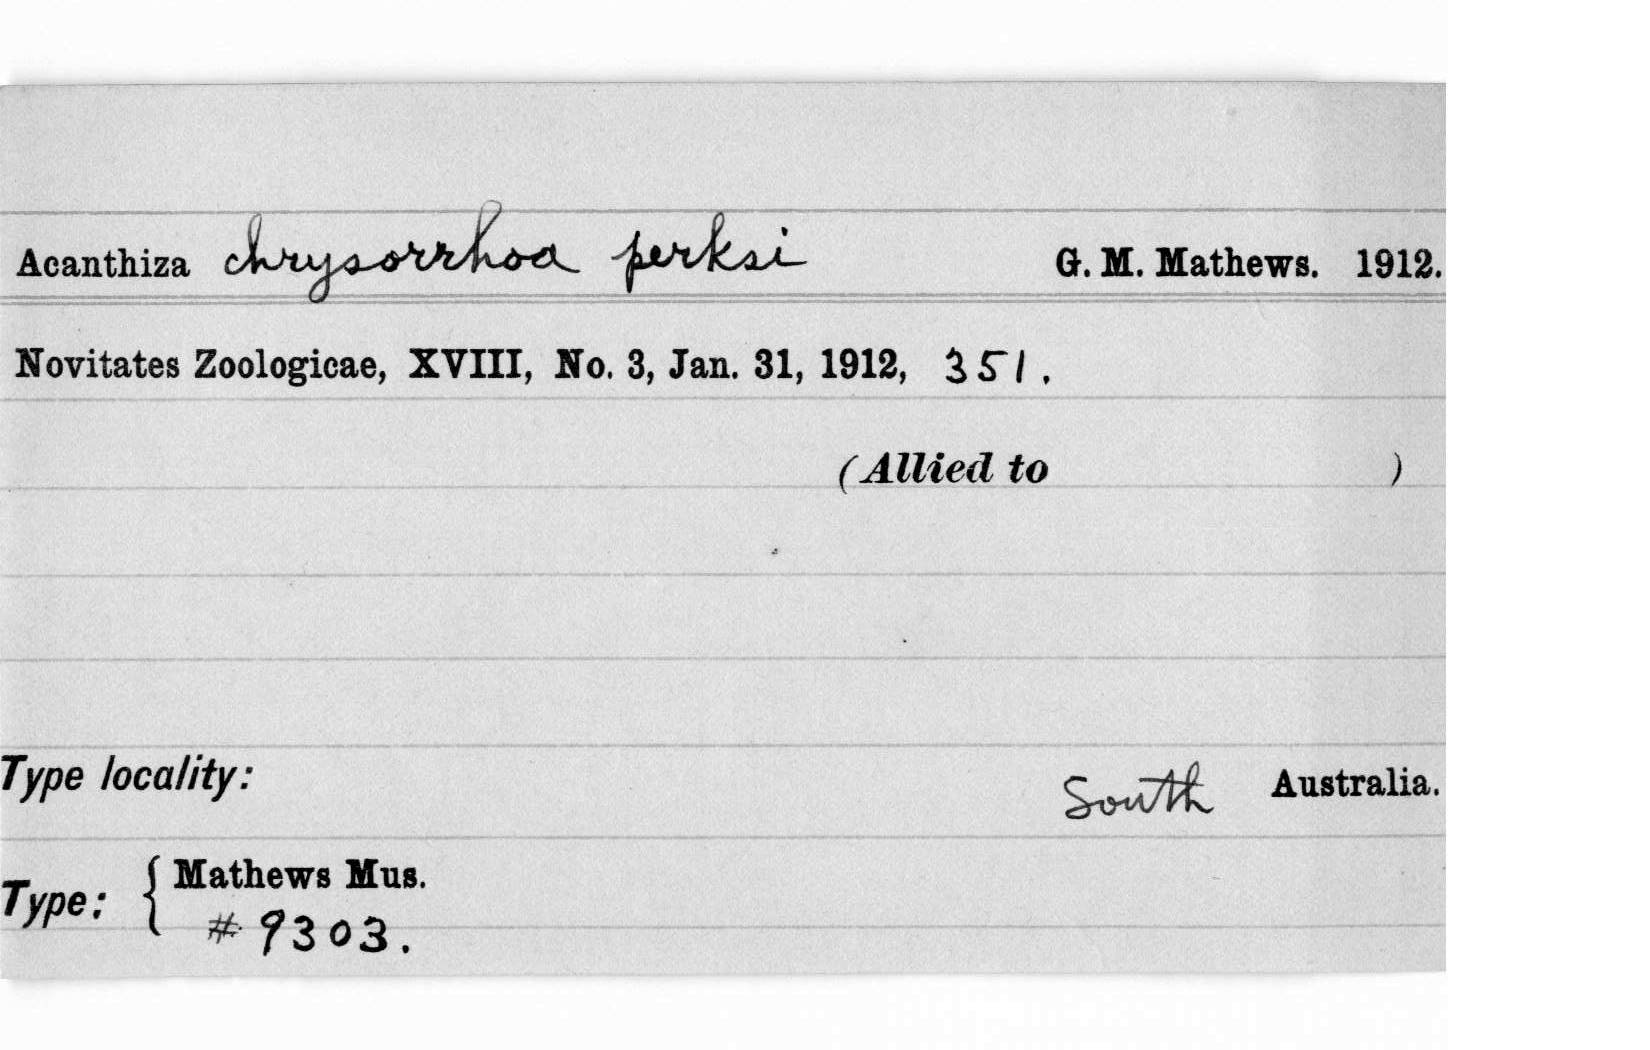 Acanthiza chrysorrhoa perksi G. M. Mathews. 1912.
Novitates Zoologicae, XVIII, No. 3, Jan. 31, 1912, 351.
(Allied to )
Type locality: South Australia.
Type: { Mathews Mus.
# 9303.